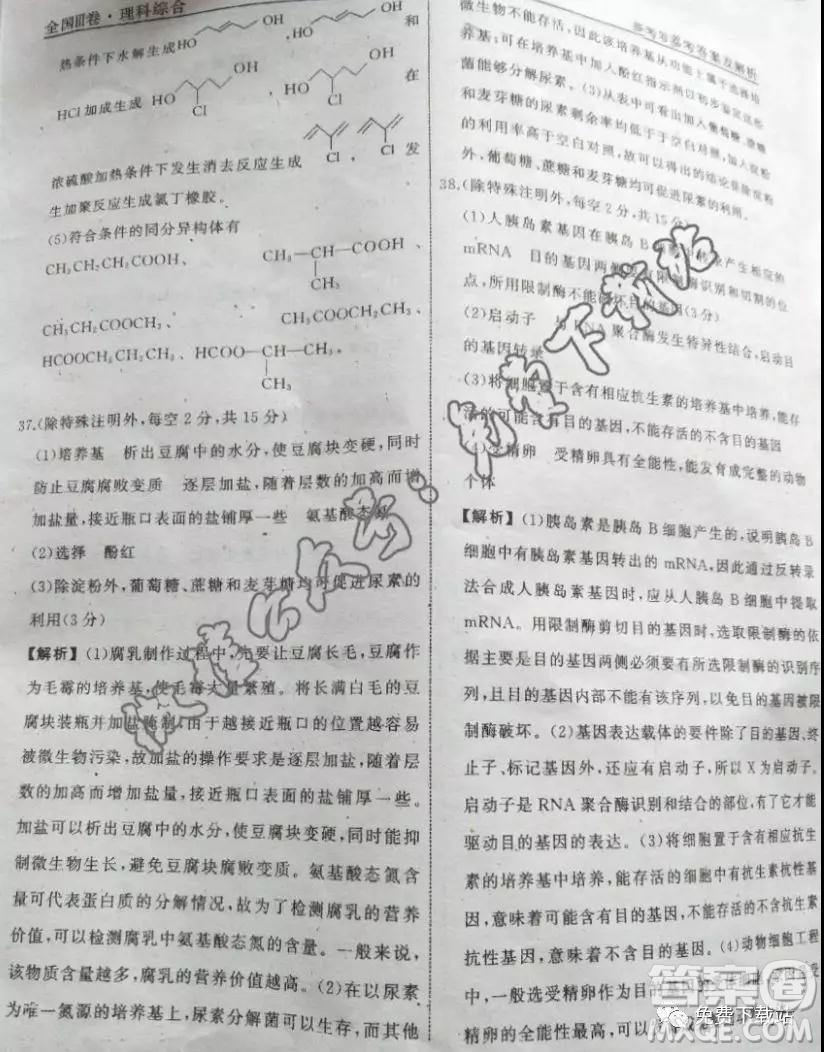 全国Ⅲ卷·理科综合
热条件下水解生成HO OH、HO OH和
HCl加成生成HO OH Cl、HO OH Cl在
浓硫酸加热条件下发生消去反应生成 Cl、Cl，发
生加聚反应生成氯丁橡胶。
(5)符合条件的同分异构体有
CH₃CH₂CH₂COOH、CH₃—CH—COOH、
CH₃
CH₃CH₂COOCH₃、CH₃COOCH₂CH₃、
HCOOCH₂CH₂CH₃、HCOO—CH—CH₃。
CH₃
37.(除特殊注明外,每空2分,共15分)
(1)培养基 析出豆腐中的水分,使豆腐块变硬,同时
防止豆腐腐败变质 逐层加盐,随着层数的加高而增
加盐量,接近瓶口表面的盐铺厚一些 氨基酸态氮
(2)选择 酚红
(3)除淀粉外,葡萄糖、蔗糖和麦芽糖均可促进尿素的
利用(3分)
【解析】(1)腐乳制作过程中,先要让豆腐长毛,豆腐作
为毛霉的培养基,使毛霉大量繁殖。将长满白毛的豆
腐块装瓶并加盐腌制,由于越接近瓶口的位置越容易
被微生物污染,故加盐的操作要求是逐层加盐,随着层
数的加高而增加盐量,接近瓶口表面的盐铺厚一些。
加盐可以析出豆腐中的水分,使豆腐块变硬,同时能抑
制微生物生长,避免豆腐块腐败变质。氨基酸态氮含
量可代表蛋白质的分解情况,故为了检测腐乳的营养
价值,可以检测腐乳中氨基酸态氮的含量。一般来说,
该物质含量越多,腐乳的营养价值越高。(2)在以尿素
为唯一氮源的培养基上,尿素分解菌可以生存,而其他
参考答案及解析
微生物不能存活,因此该培养基从功能上属于选择培
养基;可在培养基中加入酚红指示剂以初步鉴定这些
菌能够分解尿素。(3)从表中可看出加入葡萄糖、蔗糖
和麦芽糖的尿素剩余率均低于空白对照,加入淀粉
的利用率高于空白对照,故可以得出的结论是除淀粉
外,葡萄糖、蔗糖和麦芽糖均可促进尿素的利用。
38.(除特殊注明外,每空2分,共15分)
(1)人胰岛素基因在胰岛B产生相应的
mRNA 目的基因两侧有限制酶识别和切割的位
点,所用限制酶不能破坏目的基因(3分)
(2)启动子 与RNA聚合酶发生特异性结合,启动目
的基因转录
(3)将细胞置于含有相应抗生素的培养基中培养,能存
活的可能含有目的基因,不能存活的不含目的基因
(4)受精卵 受精卵具有全能性,能发育成完整的动物
个体
【解析】(1)胰岛素是胰岛B细胞产生的,说明胰岛B
细胞中有胰岛素基因转出的mRNA,因此通过反转录
法合成人胰岛素基因时,应从人胰岛B细胞中提取
mRNA。用限制酶剪切目的基因时,选取限制酶的依
据主要是目的基因两侧必须要有所选限制酶的识别序
列,且目的基因内部不能有该序列,以免目的基因被限
制酶破坏。(2)基因表达载体的要件除了目的基因、终
止子、标记基因外,还应有启动子,所以X为启动子。
启动子是RNA聚合酶识别和结合的部位,有了它才能
驱动目的基因的表达。(3)将细胞置于含有相应抗生
素的培养基中培养,能存活的细胞中含抗生素抗性基
因,意味着可能含有目的基因,不能存活的不含抗生素
抗性基因,意味着不含目的基因。(4)动物细胞工程
中,一般选受精卵作为目的基因的受体细胞,原因是受
精卵的全能性最高,可以
答案圈
MXQE.COM
免费下载站